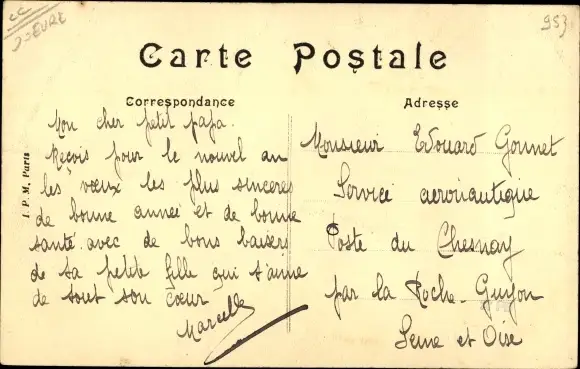 953
Carte Postale
Correspondance
Mon cher petit papa.
Reçois pour le nouvel an
les vœux les plus sincères
de bonne année et de bonne
santé avec de bons baisers
de ta petite fille qui t'aime
de tout son cœur
Marcelle
I. P. M. Paris
Adresse
Monsieur Edouard Gonnet
Service aeronautique
Poste du Chesnay
par la Roche-Guyon
Seine et Oise